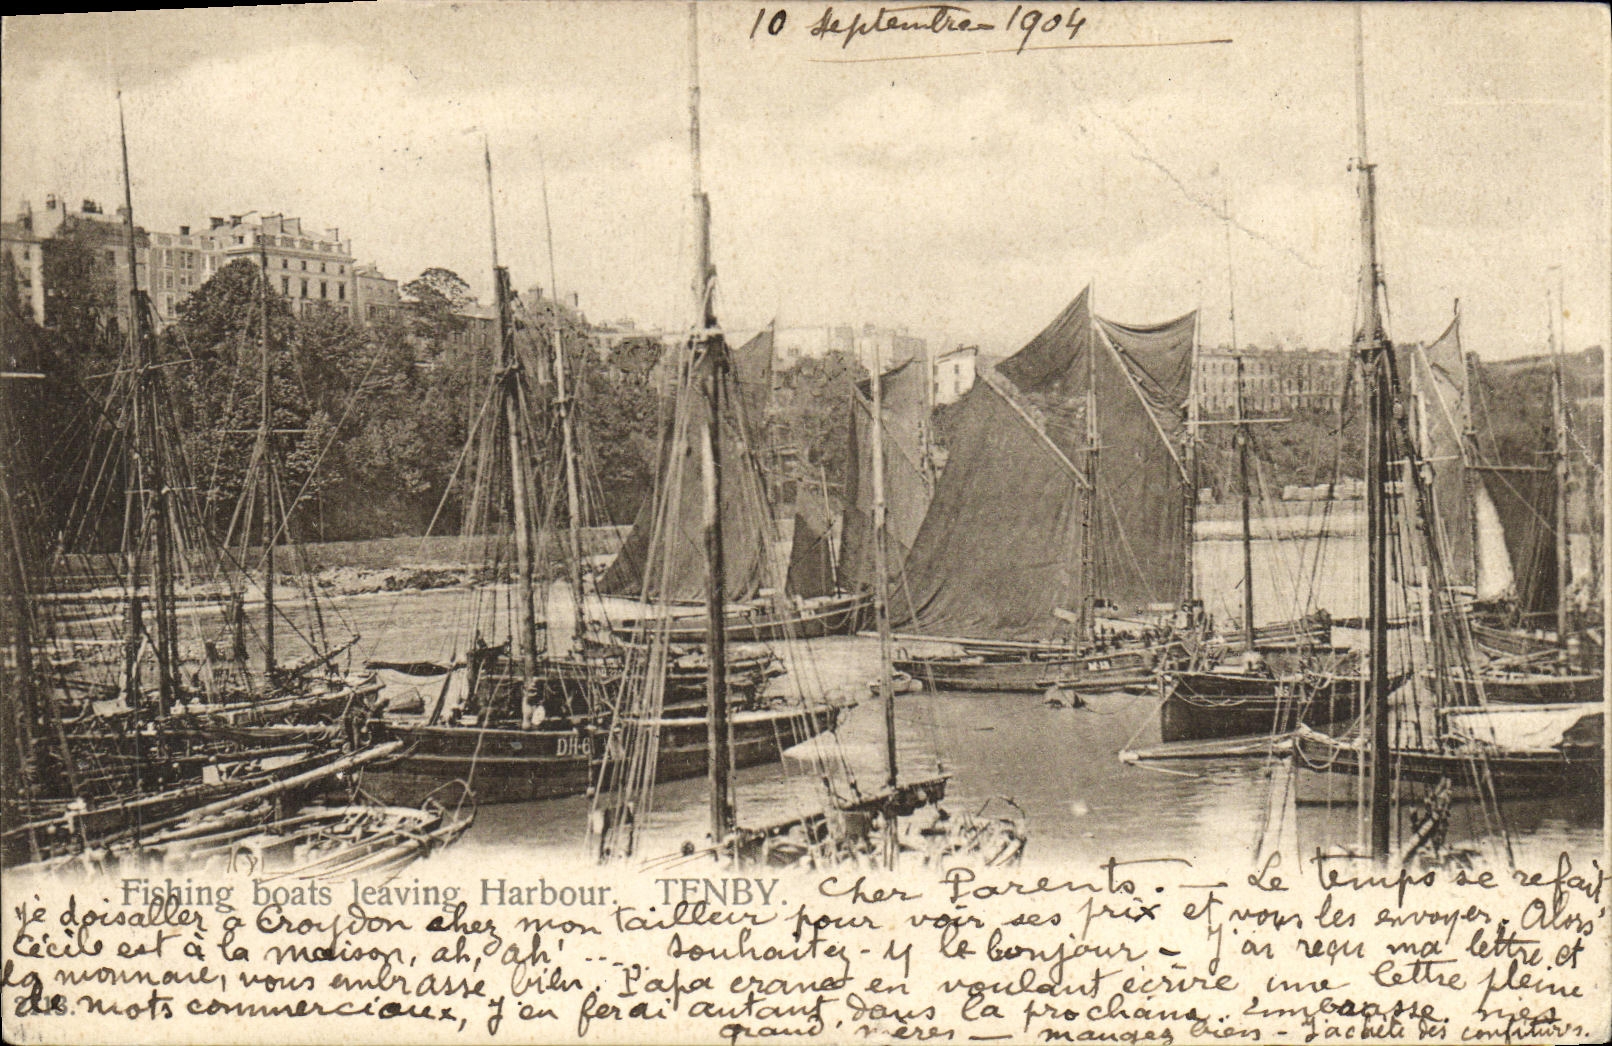 10 Septembre 1904
DH 6
Fishing boats leaving Harbour. TENBY.
Cher Parents. — Le temps se refait
je dois aller a Croydon chez mon tailleur pour voir ses prix et vous les envoyer. Alors
Cécile est à la maison, ah, ah! ... souhaitez-y le bonjour - J'ai reçu ma lettre et
la monnaie, vous embrasse bien. Papa crane en voulant écrire une lettre pleine
de mots commerciaux, J'en ferai autant dans la prochaine. embrasse mes
grand mères — mangez bien - J'achète des confitures.